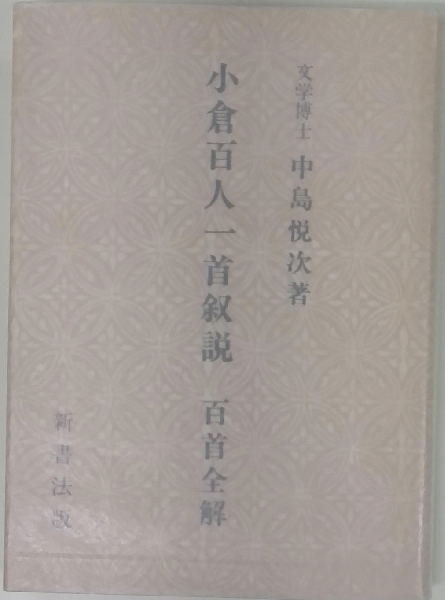 文学博士 中島悦次著
小倉百人一首叙説 百首全解
新書法版